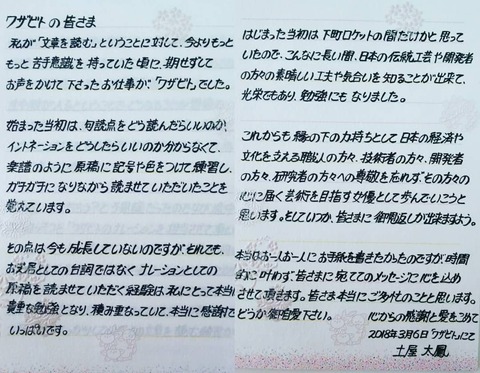 ワザビトの皆さま
私が「文章を読む」ということに対して、今よりもっと
もっと苦手意識を持っていた頃に、期せずして
お声をかけて下さったお仕事が、「ワザビト」でした。
始まった当初は、句読点をどう読んだらいいのか、
イントネーションをどうしたらいいのか分からなくて、
楽譜のように原稿に記号や色をつけて練習し、
ガチガチになりながら読ませていただいたことを
覚えています。
その点は今も成長していないのですが、それでも、
お芝居としての台詞ではなくナレーションとしての
原稿を読ませていただく経験は、私にとって本当に
貴重な勉強となり、積み重なっていて、本当に感謝で
いっぱいです。
はじまった当初は下町ロケットの間だけかと思って
いたので、こんなに長い間、日本の伝統工芸や開発者
の方々の素晴しい工夫や気合いを知ることが出来て、
光栄でもあり、勉強にもなりました。
これからも縁の下の力持ちとして日本の経済や
文化を立える職人の方々、技術者の方々、開発者
の方々、研究者の方々への尊敬を忘れず、その方々の
心に届く芸術を目指す女優として歩んでいこうと
思います。そしていつか、皆さまに御恩返しが出来ますよう。
本当はお一人お一人にお手紙を書きたかったのですが、時間
的に叶わず、皆さまに宛ててのメッセージに心を込め
させて頂きます。皆さま本当にご多忙のことと思います。
どうか御自愛下さい。 心からの感謝と愛をこめて
2018年3月6日「ワザビト」にて
土屋 太鳳